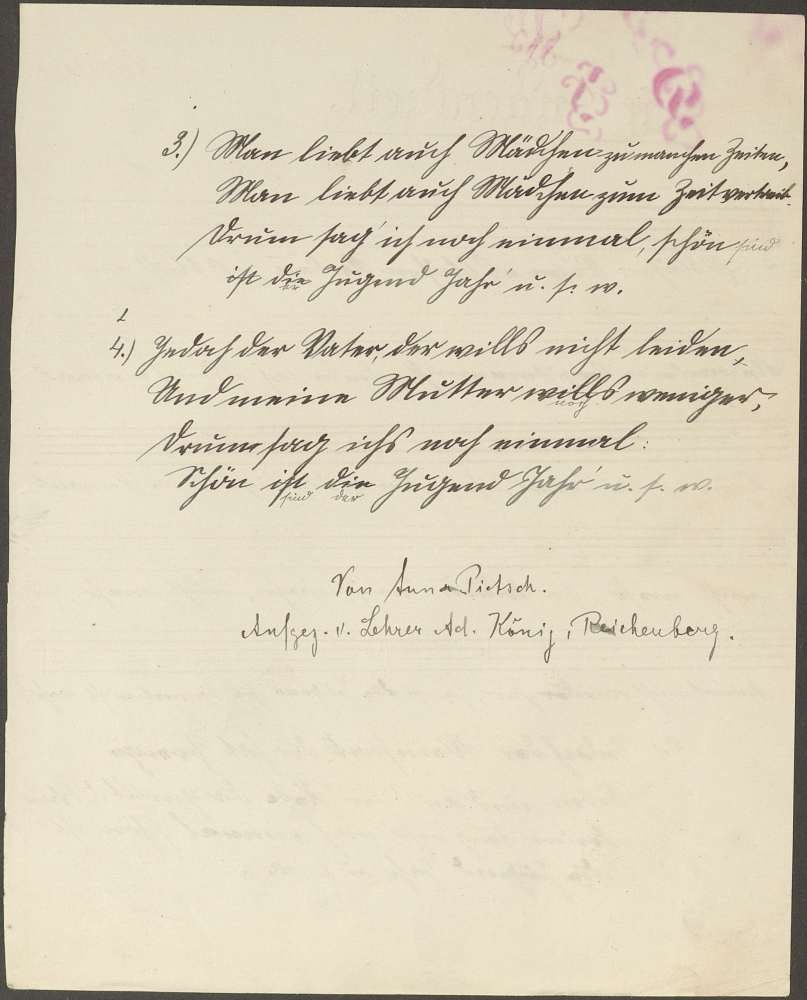 3.) Man liebt auch Mädchen zu manchen Zeiten,
Man liebt auch Mädchen zum Zeitvertreib.
Drum sag' ich noch einmal, schön sind
ist die Jugend Jahr' u. s. w.
der
1
4.) Jedoch der Vater, der wills nicht leiden,
Und meine Mutter wills weniger,
noch
Drum sag ichs noch einmal:
Schön ist die Jugend Jahr' u. s. w.
sind der
Von Anna Pietsch.
Aufgez. v. Lehrer Ad. König, Reichenberg.